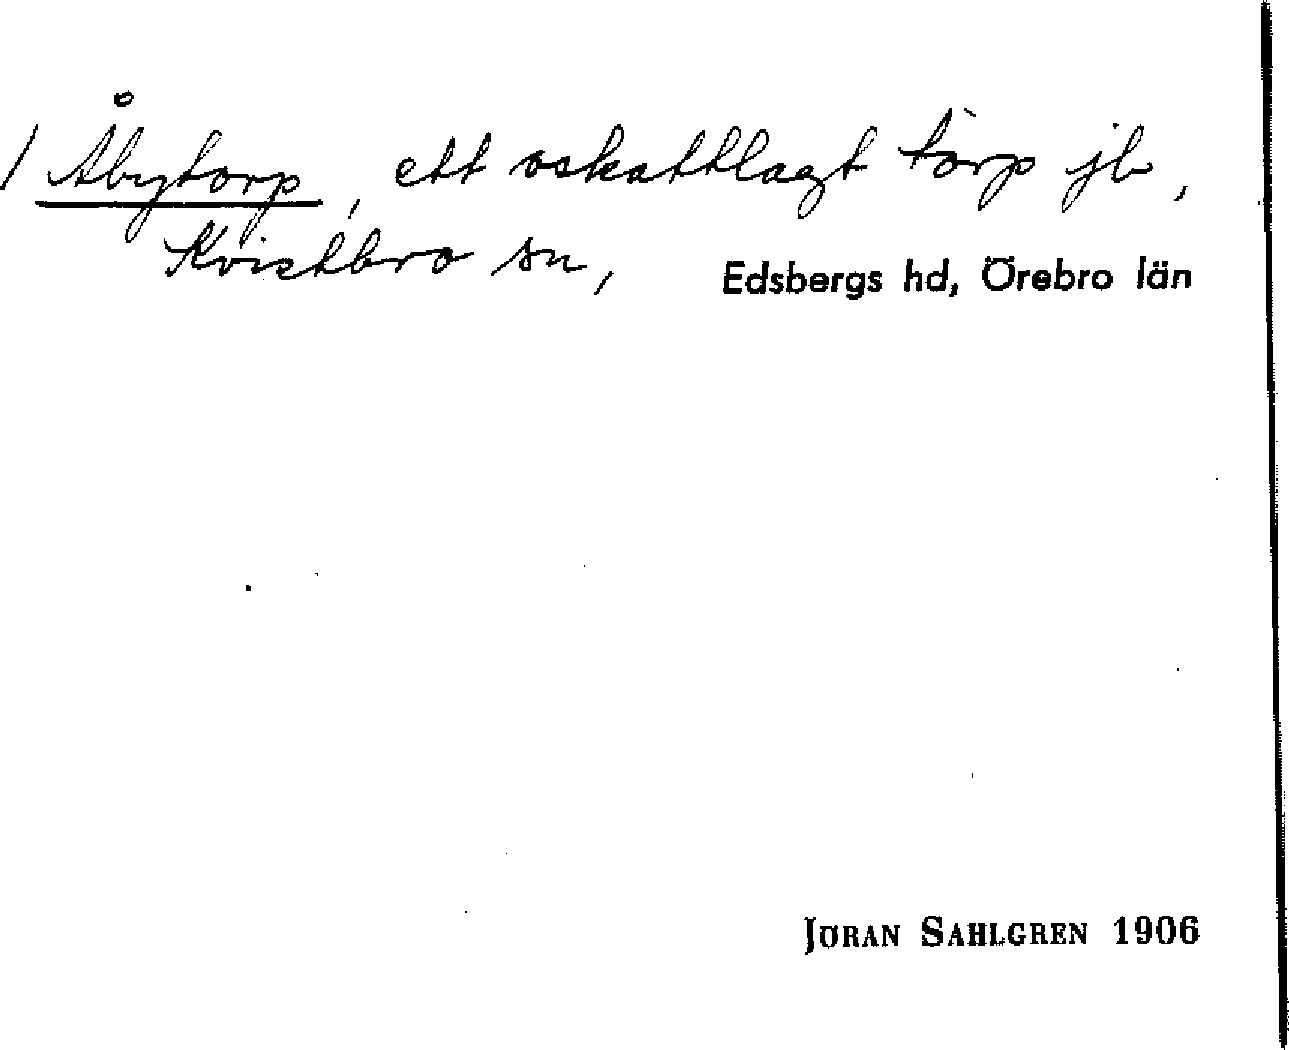 / Åbytorp, ett oskattlagt torp jb,
Kvistbro sn, Edsbergs hd, Örebro län
JÖRAN SAHLGREN 1906